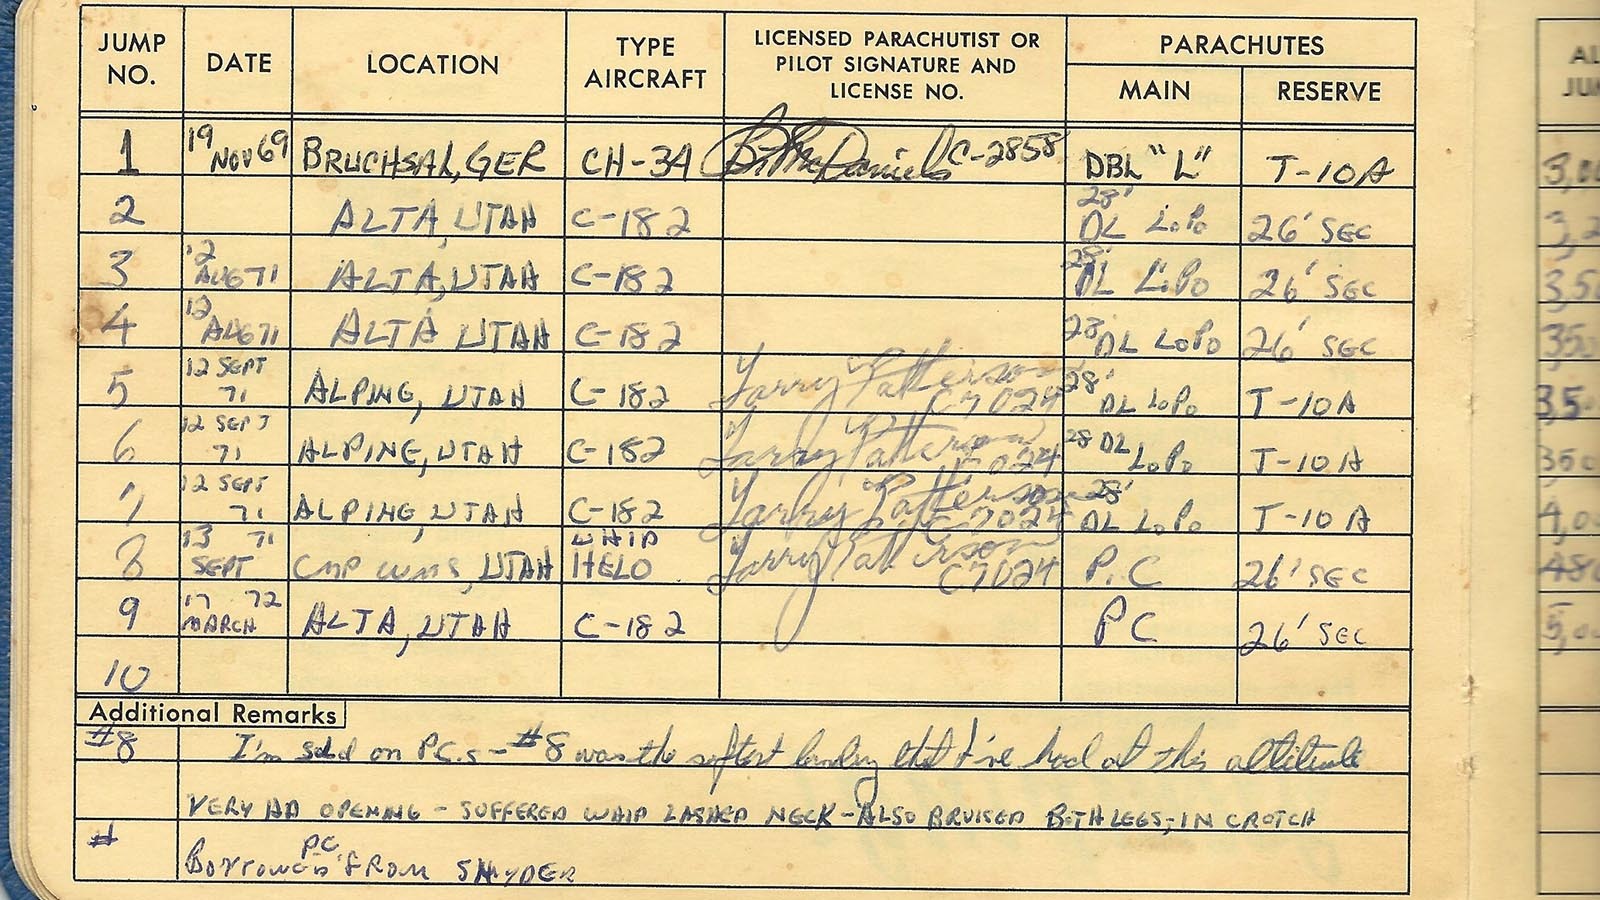 JUMP NO. DATE LOCATION TYPE AIRCRAFT LICENSED PARACHUTIST OR PILOT SIGNATURE AND LICENSE NO. PARACHUTES MAIN RESERVE
1 19 NOV 69 BRUCHSAL, GER CH-34 Bill McDaniels C-2858 DBL "L" T-10A
2 ALTA, UTAH C-182 28' DL LoPo 26' SEC
3 12 AUG 71 ALTA, UTAH C-182 28' DL LoPo 26' SEC
4 12 AUG 71 ALTA UTAH C-182 28' DL LoPo 26' SEC
5 12 SEPT 71 ALPING, UTAH C-182 Larry Patterson C7024 28' DL LoPo T-10A
6 12 SEPT 71 ALPINE, UTAH C-182 Larry Patterson C7024 28' DL LoPo T-10A
7 12 SEPT 71 ALPING, UTAH C-182 Larry Patterson C7024 28' DL LoPo T-10A
8 13 SEPT 71 CMP WMS, UTAH WHIP HELO Larry Patterson C7024 P.C 26' SEC
9 17 MARCH 72 ALTA, UTAH C-182 PC 26' SEC
10
Additional Remarks
#8 I'm sold on P.C.s - #8 was the softest landing that I've had at this altitude
VERY HD OPENING - SUFFERED WHIP LASHED NECK - ALSO BRUISED BOTH LEGS, IN CROTCH
# Borrowed PC FROM SNYDER
AL
JUM
3,00
3,2
3,50
350
3,5
350
4,0
480
5,0